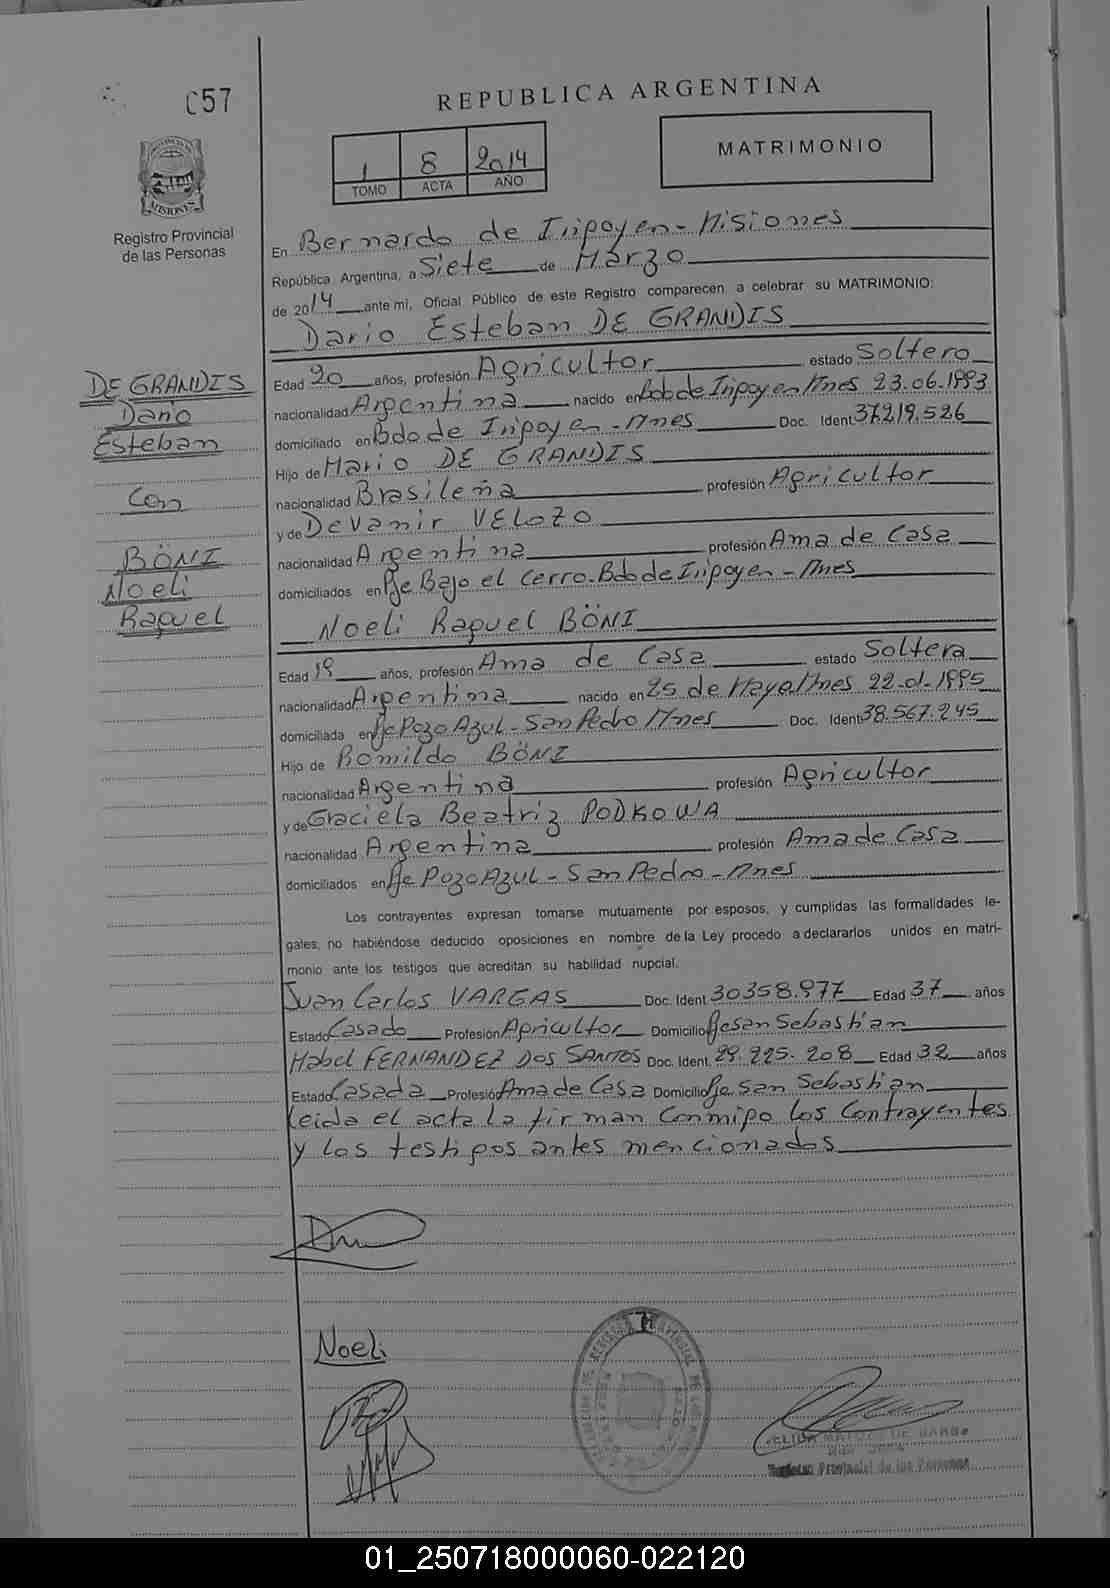 057
REPUBLICA ARGENTINA
1 8 2014
TOMO ACTA AÑO
MATRIMONIO
PROVINCIA DE
MISIONES
Registro Provincial
de las Personas
En Bernardo de Irigoyen - Misiones
República Argentina, a Siete de Marzo
de 2014 ante mi, Oficial Público de este Registro comparecen a celebrar su MATRIMONIO:
Dario Esteban DE GRANDIS
DE GRANDIS
Dario
Esteban
Con
BÖNI
Noeli
Raquel
Edad 20 años, profesión Agricultor estado Soltero
nacionalidad Argentina nacido en Bdo de Irigoyen Mnes 23.06.1993
domiciliado en Bdo de Irigoyen - Mnes Doc. Ident 37.219.526
Hijo de Mario DE GRANDIS
nacionalidad Brasileña profesión Agricultor
y de Devanir VELOZO
nacionalidad Argentina profesión Ama de Casa
domiciliados en Pje Bajo el Cerro - Bdo de Irigoyen - Mnes
Noeli Raquel BÖNI
Edad 19 años, profesión Ama de Casa estado Soltera
nacionalidad Argentina nacido en 25 de Mayo Mnes 22-01-1995
domiciliada en Pje Pozo Azul - San Pedro Mnes Doc. Ident 38.567.245
Hijo de Romildo BÖNI
nacionalidad Argentina profesión Agricultor
y de Graciela Beatriz PODKOWA
nacionalidad Argentina profesión Ama de Casa
domiciliados en Pje Pozo Azul - San Pedro - Mnes
Los contrayentes expresan tomarse mutuamente por esposos, y cumplidas las formalidades le-
gales, no habiéndose deducido oposiciones en nombre de la Ley procedo a declararlos unidos en matri-
monio ante los testigos que acreditan su habilidad nupcial.
Juan Carlos VARGAS Doc. Ident 30358.977 Edad 37 años
Estado Casado Profesión Agricultor Domicilio Pje San Sebastian
Mabel FERNANDEZ DOS SANTOS Doc. Ident. 29.225.208 Edad 32 años
Estado Casada Profesión Ama de Casa Domicilio Pje San Sebastian
Leida el acta la firman conmigo los Contrayentes
y los testigos antes mencionados
Noeli
Provincial de las Personas
01_250718000060-022120